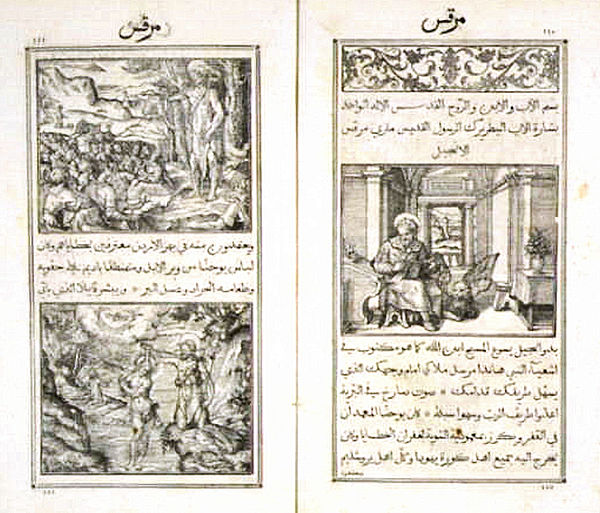 مرقس
١١٠
بسم الاب والابن والروح القدس الاله الواحد
بشارة الاب البطريرك الرسول القديس ماري مرقس
الانجيل
بدو انجيل يسوع المسيح ابن الله كما هو مكتوب في
اشعيا النبي هانذا مرسل ملاكي امام وجهك الذي
يسهل طريقك قدامك * صوت صارخ في البرية
اعدوا طريق الرب وسهلوا سبله * كان يوحنا المعمدان
في القفر وكرز بمعمودية التوبة لغفران الخطايا وكان
يخرج اليه جميع اهل كورة يهودا وكل اهل يروشليم
مرقس
١١١
ويعتمدون منه في نهر الاردن معترفين بخطاياهم وكان
لباس يوحنا من وبر الابل ومنطقة على حقويه
وطعامه الجراد وعسل البر * ويبشر قايلا الذي ياتي